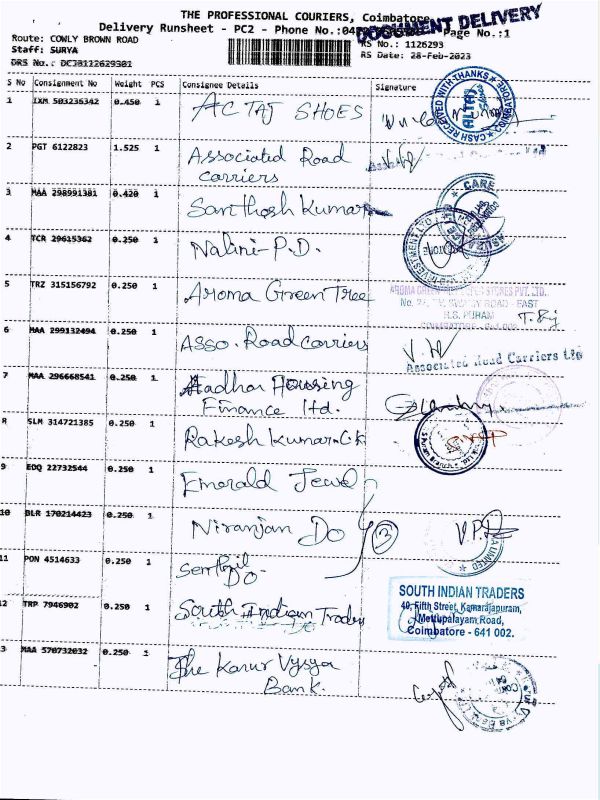 THE PROFESSIONAL COURIERS, Coimbatore
DOCUMENT DELIVERY
Delivery Runsheet - PC2 - Phone No.:042 Page No.:1
Route: COWLY BROWN ROAD
RS No.: 1126293
Staff: SURYA
RS Date: 28-Feb-2023
DRS No.: DCJB122629301
S No Consignment No Weight PCS Consignee Details Signature
1 IXM 503236342 0.450 1 AC TAJ SHOES
CASH RECEIVED WITH THANKS ALTAJ COIMBATORE
2 PGT 6122823 1.525 1 Associated Road
carriers
3 MAA 298991381 0.420 1 Santhosh Kumar
CARE
4 TCR 29615362 0.250 1 Nalini-P.D.
INVESTMENT LTD
5 TRZ 315156792 0.250 1 Aroma Green Tree
STORES PVT. LTD.
ROAD - EAST
R.S. PURAM
6 MAA 299132494 0.250 1 Asso. Road carriers
Associated Road Carriers Ltd
7 MAA 296668541 0.250 1 Aadhar Housing
Finance ltd.
8 SLM 314721385 0.250 1 Rakesh Kumar-CK
9 EDQ 22732544 0.250 1 Emerald Jewel
10 BLR 170214423 0.250 1 Niranjan Do 3
LIMITED
11 PON 4514633 0.250 1 Senthil
Do-
12 TRP 7946902 0.250 1 South Indian Traders
SOUTH INDIAN TRADERS
49, Fifth Street, Kamarajapuram,
Mettupalayam Road,
Coimbatore - 641 002.
3 MAA 570732032 0.250 1 The Karur Vysya
Bank.